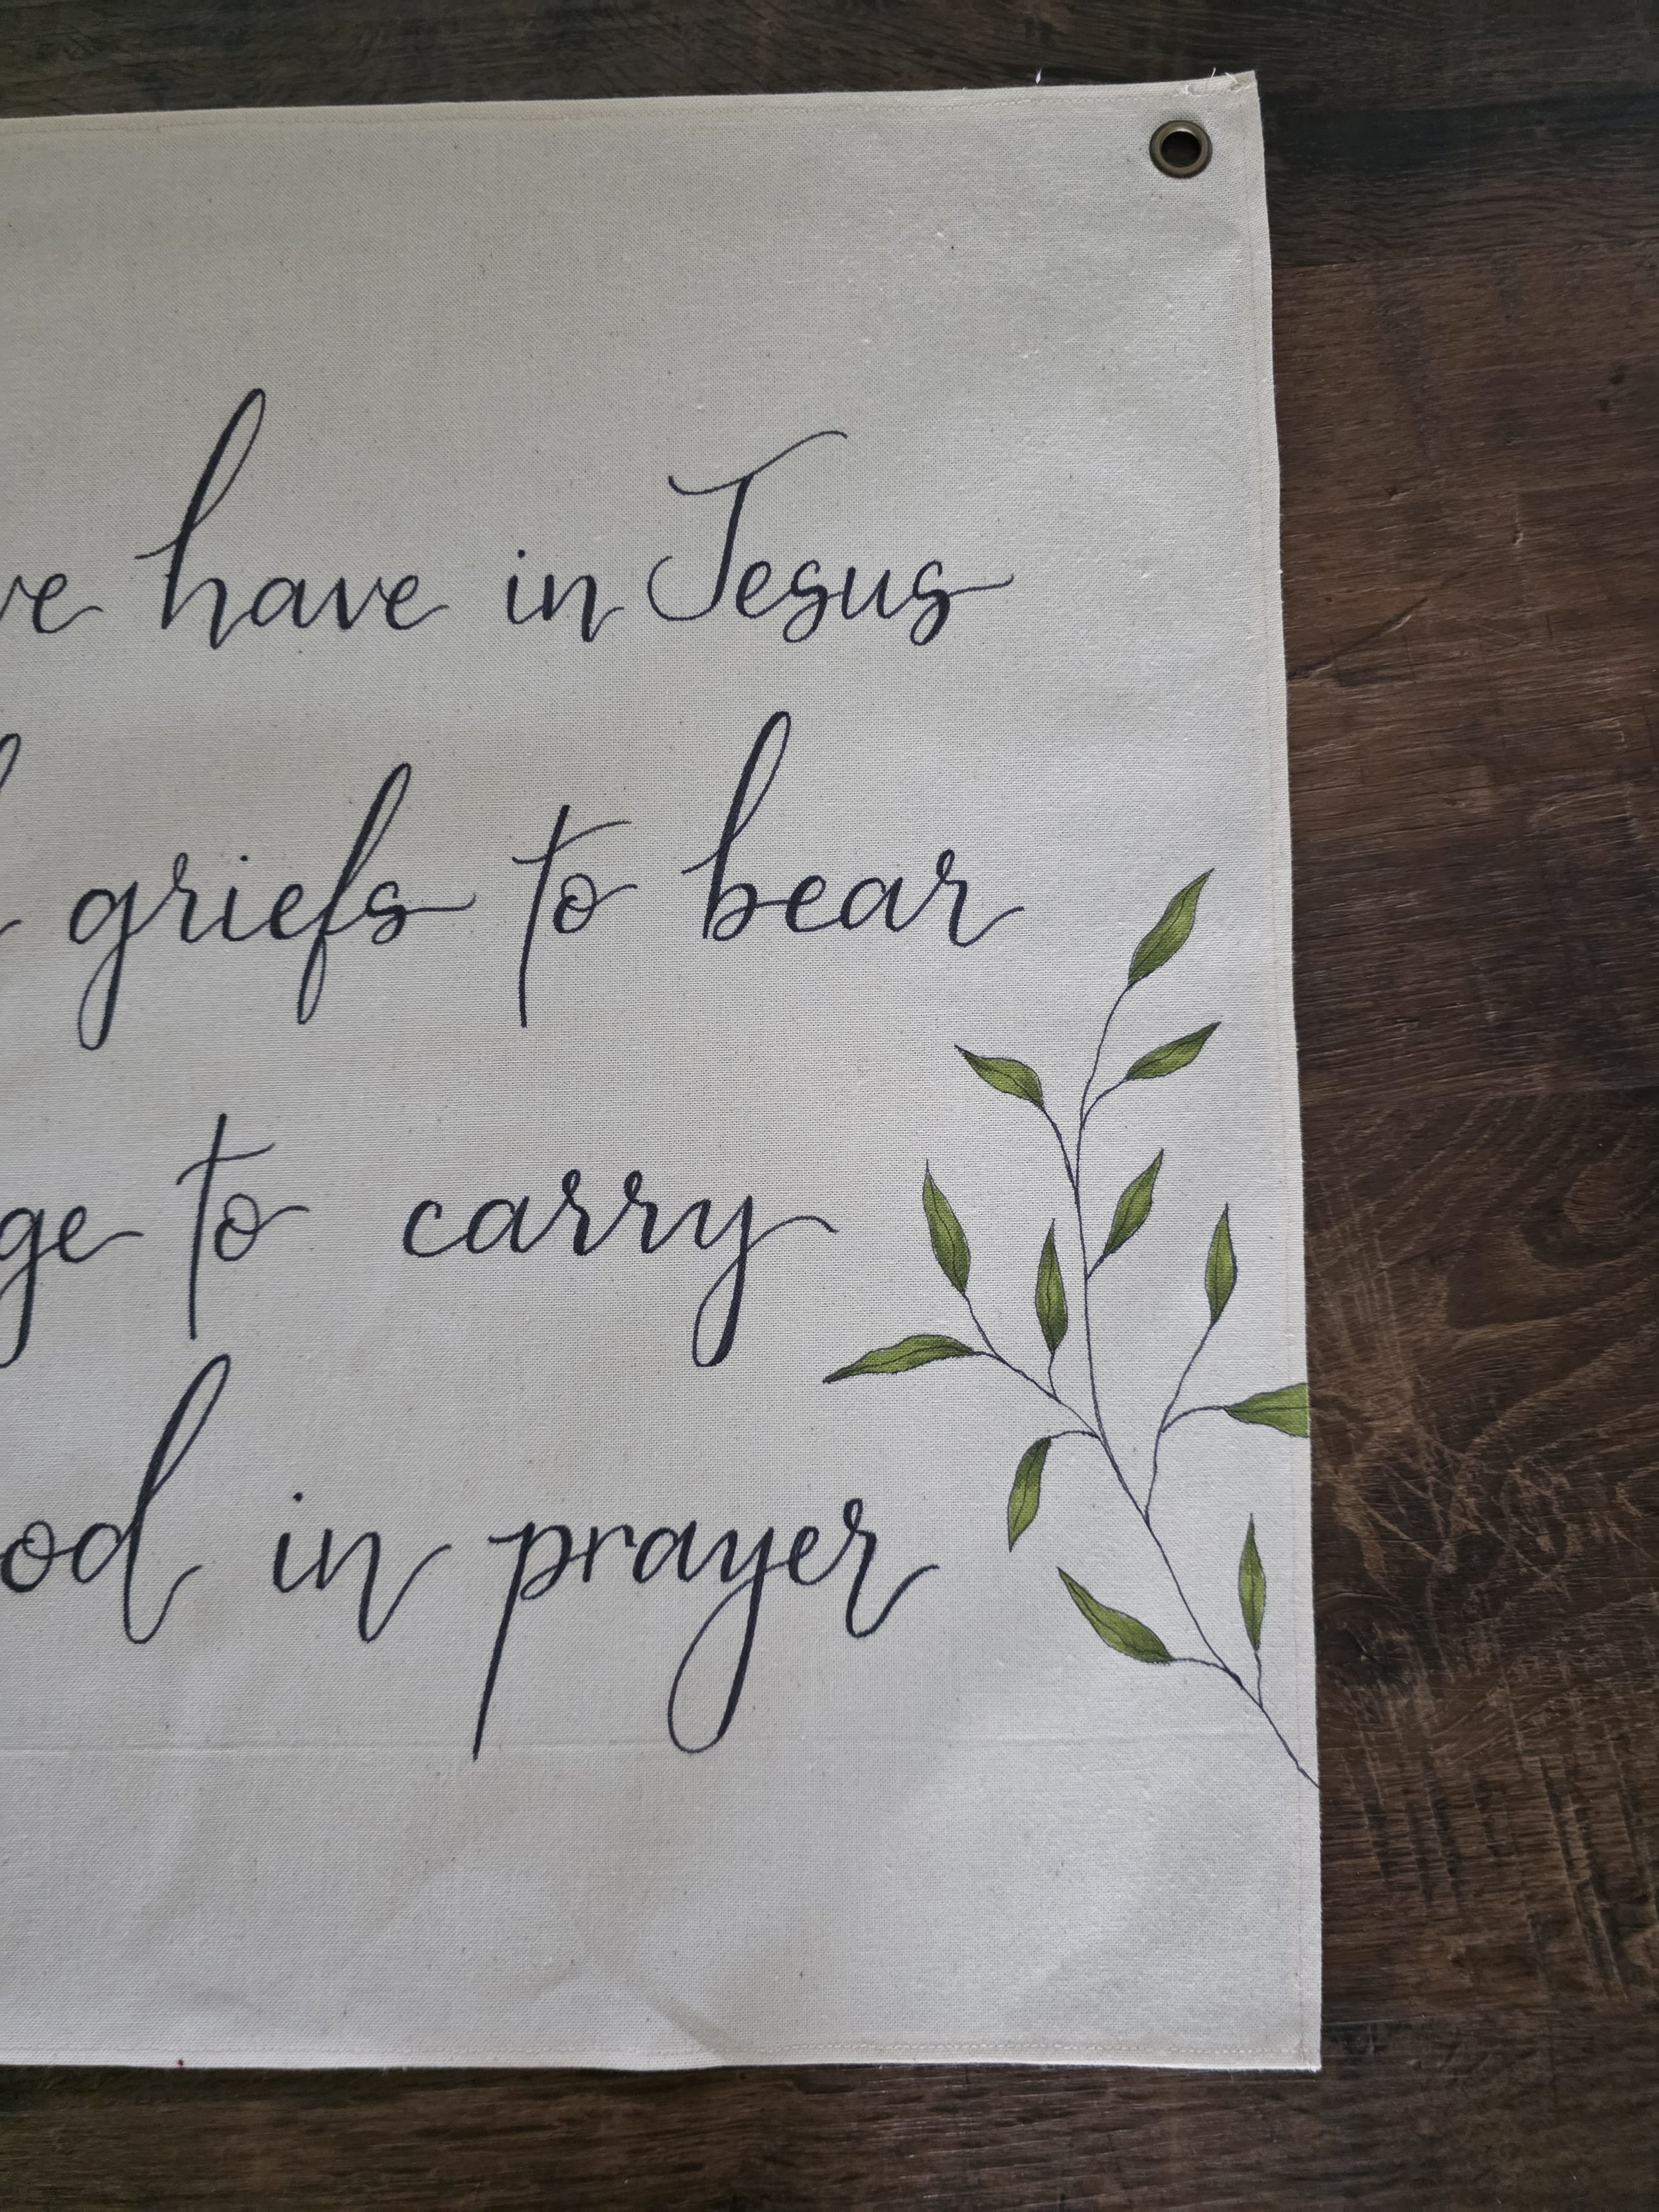 ve have in Jesus
griefs to bear
ge to carry
od in prayer